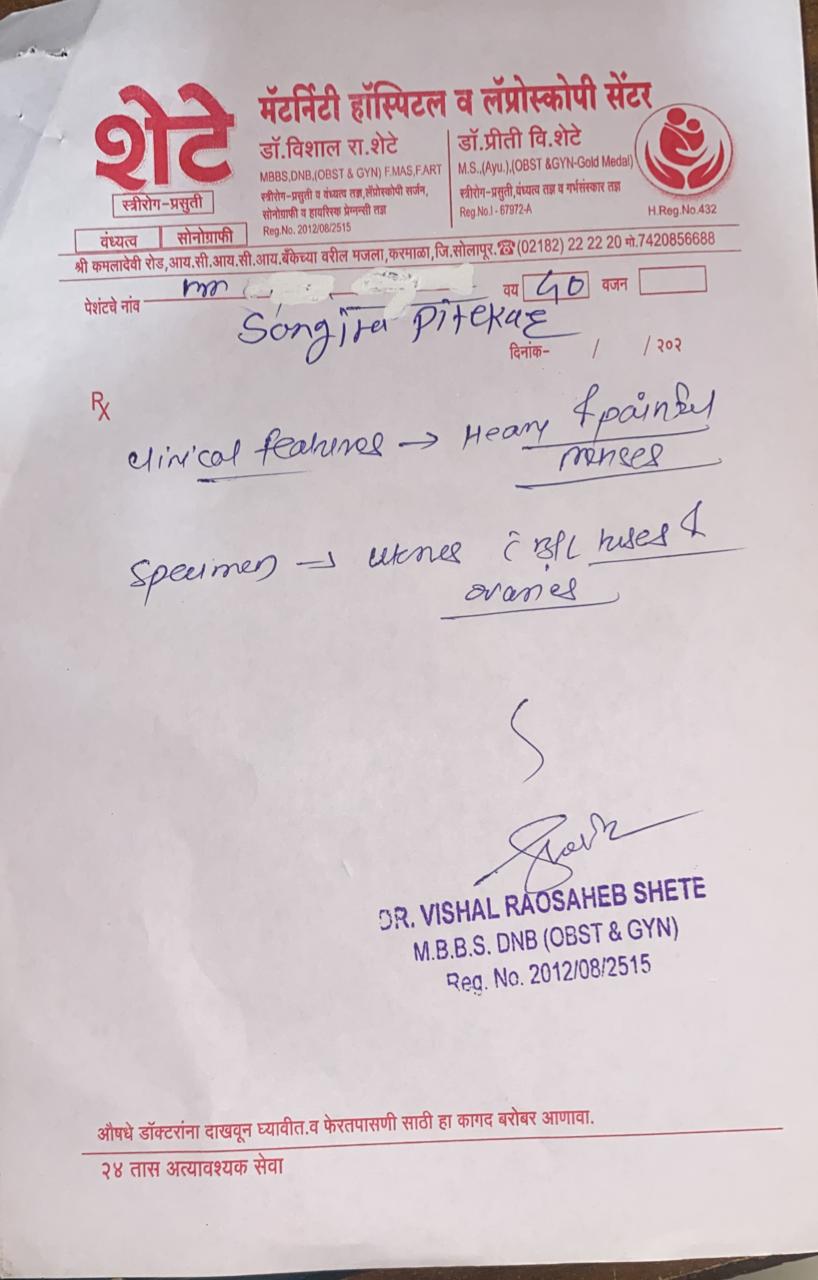 शेटे
मॅटर्निटी हॉस्पिटल व लॅप्रोस्कोपी सेंटर
स्त्रीरोग-प्रसुती
वंध्यत्व सोनोग्राफी
डॉ.विशाल रा.शेटे
MBBS,DNB,(OBST & GYN) F.MAS,F.ART
स्त्रीरोग-प्रसुती व वंध्यत्व तज्ञ,लॅप्रोस्कोपी सर्जन,
सोनोग्राफी व हायरिस्क प्रेग्नन्सी तज्ञ
Reg.No. 2012/08/2515
डॉ.प्रीती वि.शेटे
M.S.,(Ayu.),(OBST &GYN-Gold Medal)
स्त्रीरोग-प्रसुती,वंध्यत्व तज्ञ व गर्भसंस्कार तज्ञ
Reg.No.I - 67972-A
H.Reg.No.432
श्री कमलादेवी रोड,आय.सी.आय.सी.आय.बँकेच्या वरील मजला,करमाळा,जि.सोलापूर.☎(02182) 22 22 20 मो.7420856688
पेशंटचे नांव वय 40 वजन
Sangita Pitekar
दिनांक- / / २०२
Rx
clinical features → Heavy & painful
menses
Specimen → uterus c̄ B/L tubes &
ovaries
DR. VISHAL RAOSAHEB SHETE
M.B.B.S. DNB (OBST & GYN)
Reg. No. 2012/08/2515
औषधे डॉक्टरांना दाखवून घ्यावीत.व फेरतपासणी साठी हा कागद बरोबर आणावा.
२४ तास अत्यावश्यक सेवा